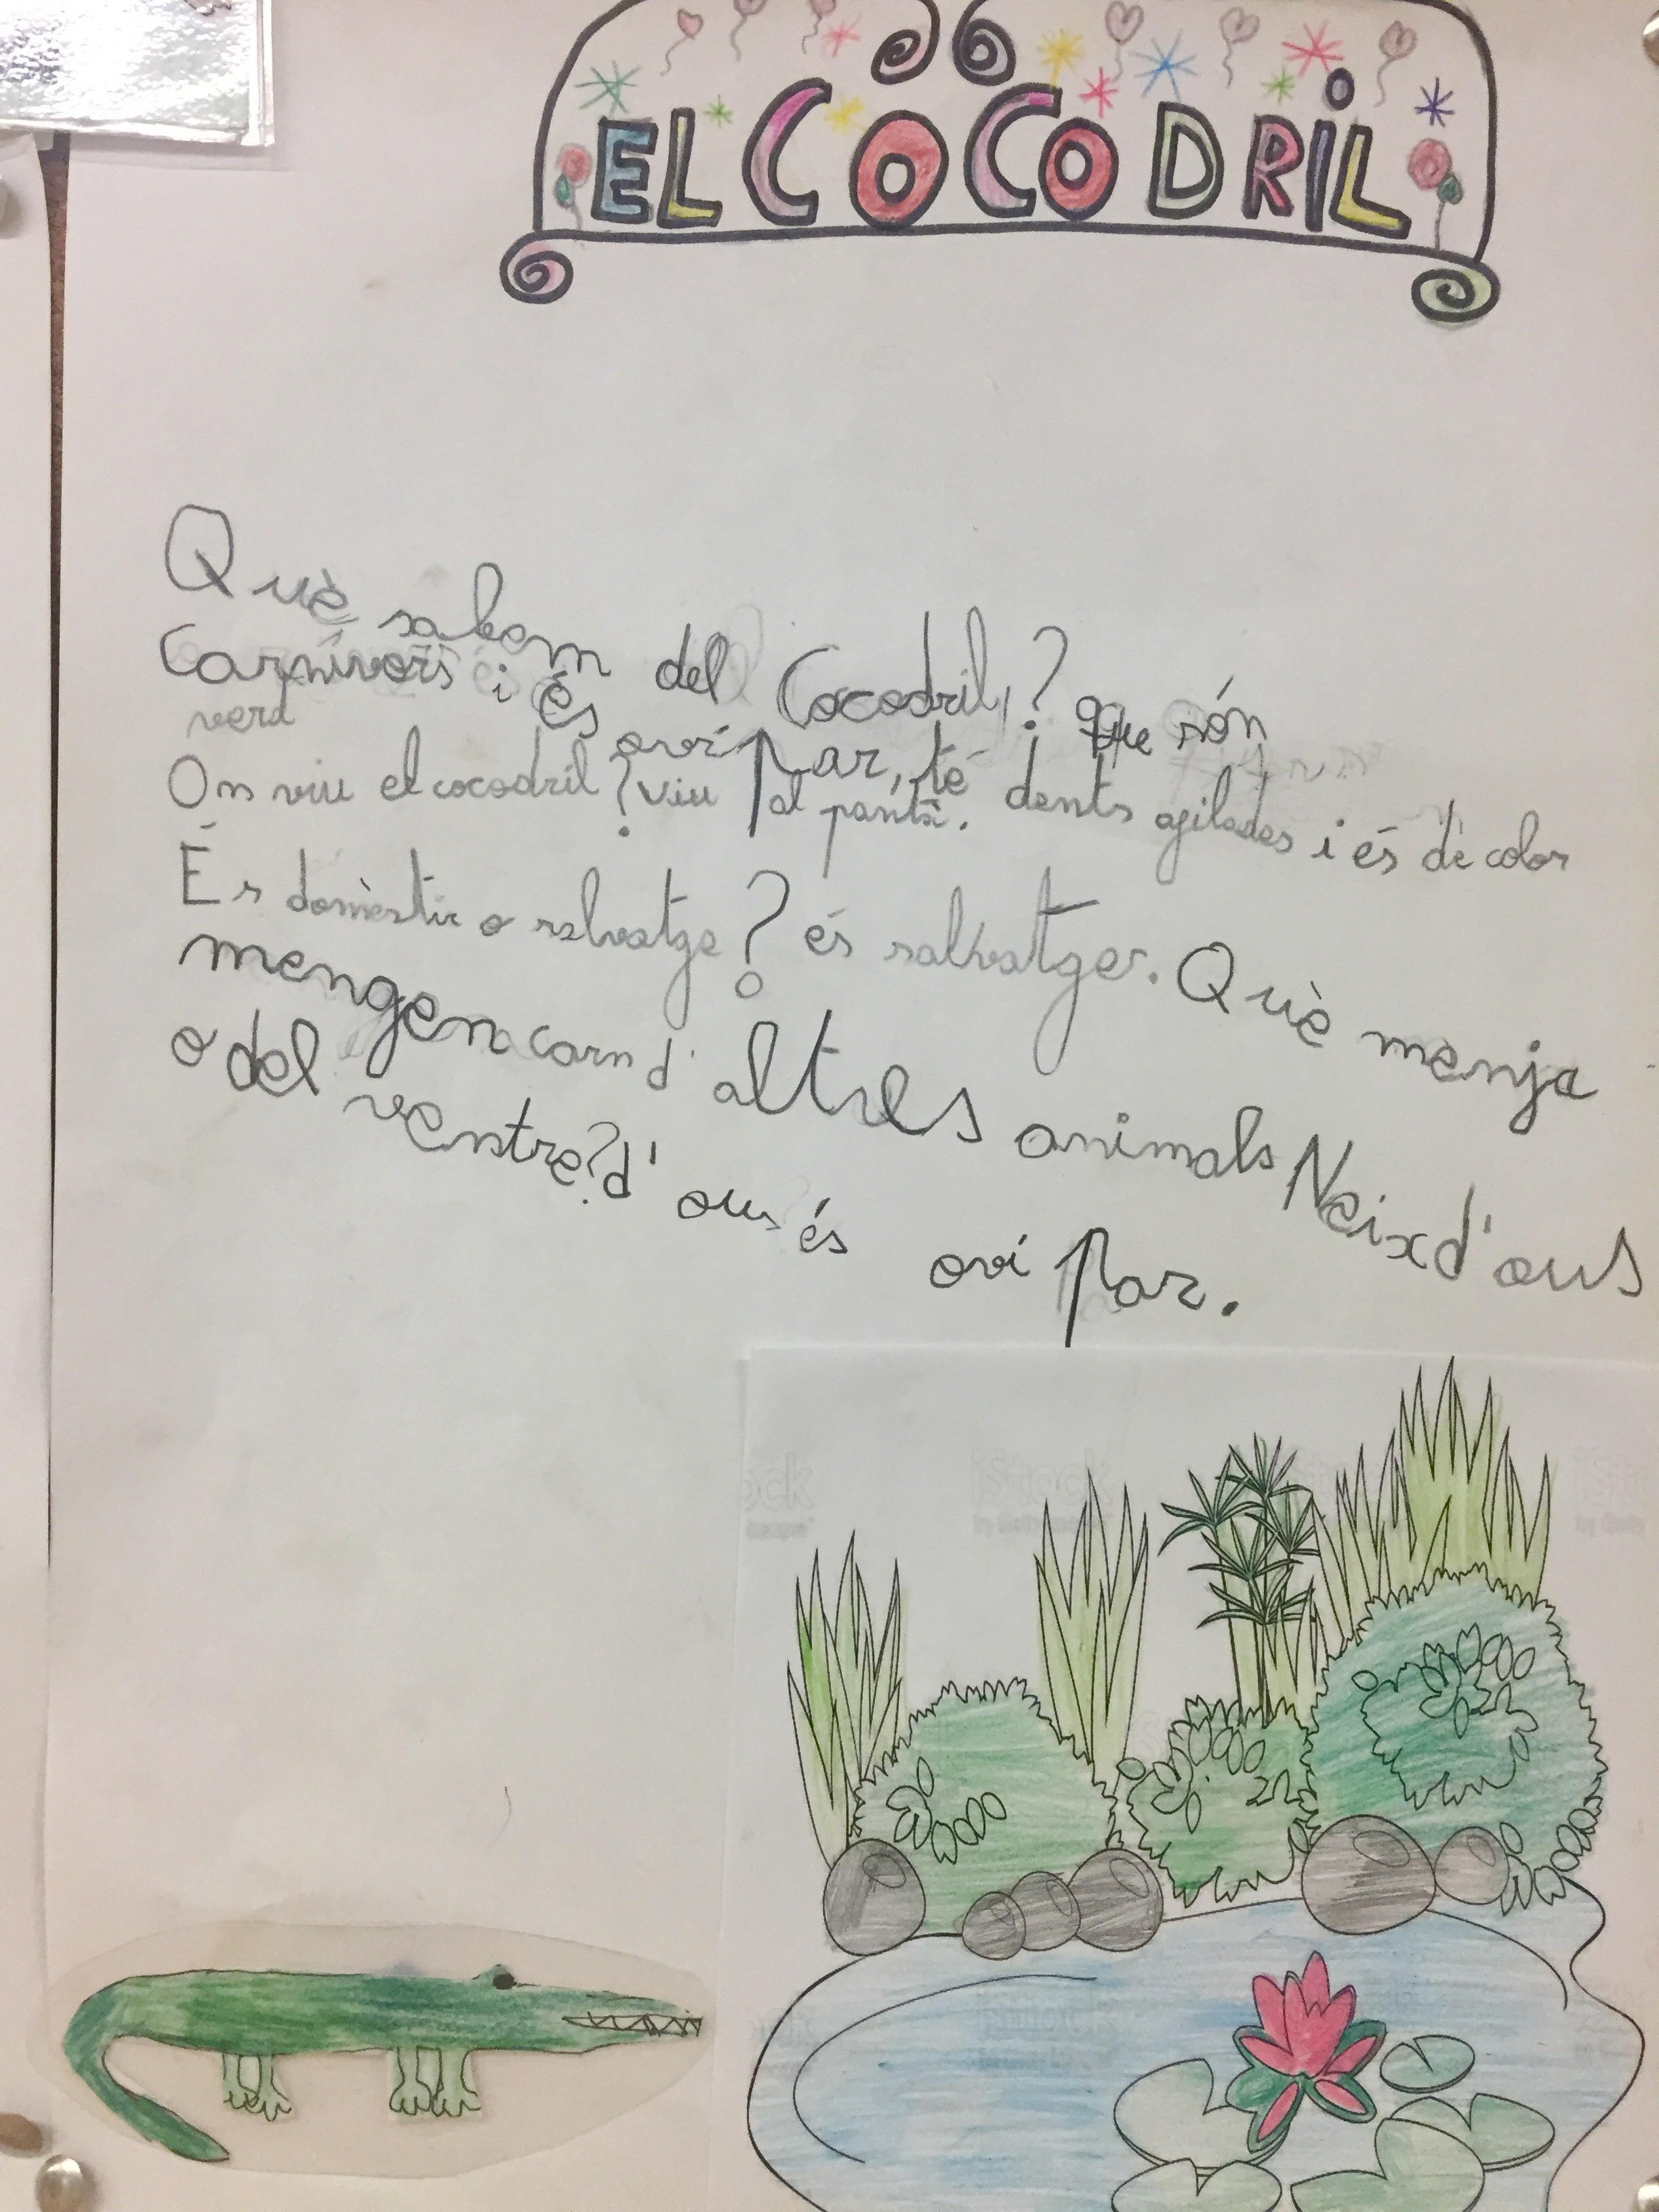 EL COCODRIL
Què sabem del Cocodril,? que són
Carnívors i és ovípar, té dents afilades i és de color
verd
On viu el cocodril? Viu al pantà.
És domèstic o salvatge? és salvatge. Què menja
mengen carn d'altres animals Neix d'ous
o del ventre? d'ous és ovípar.
iStock